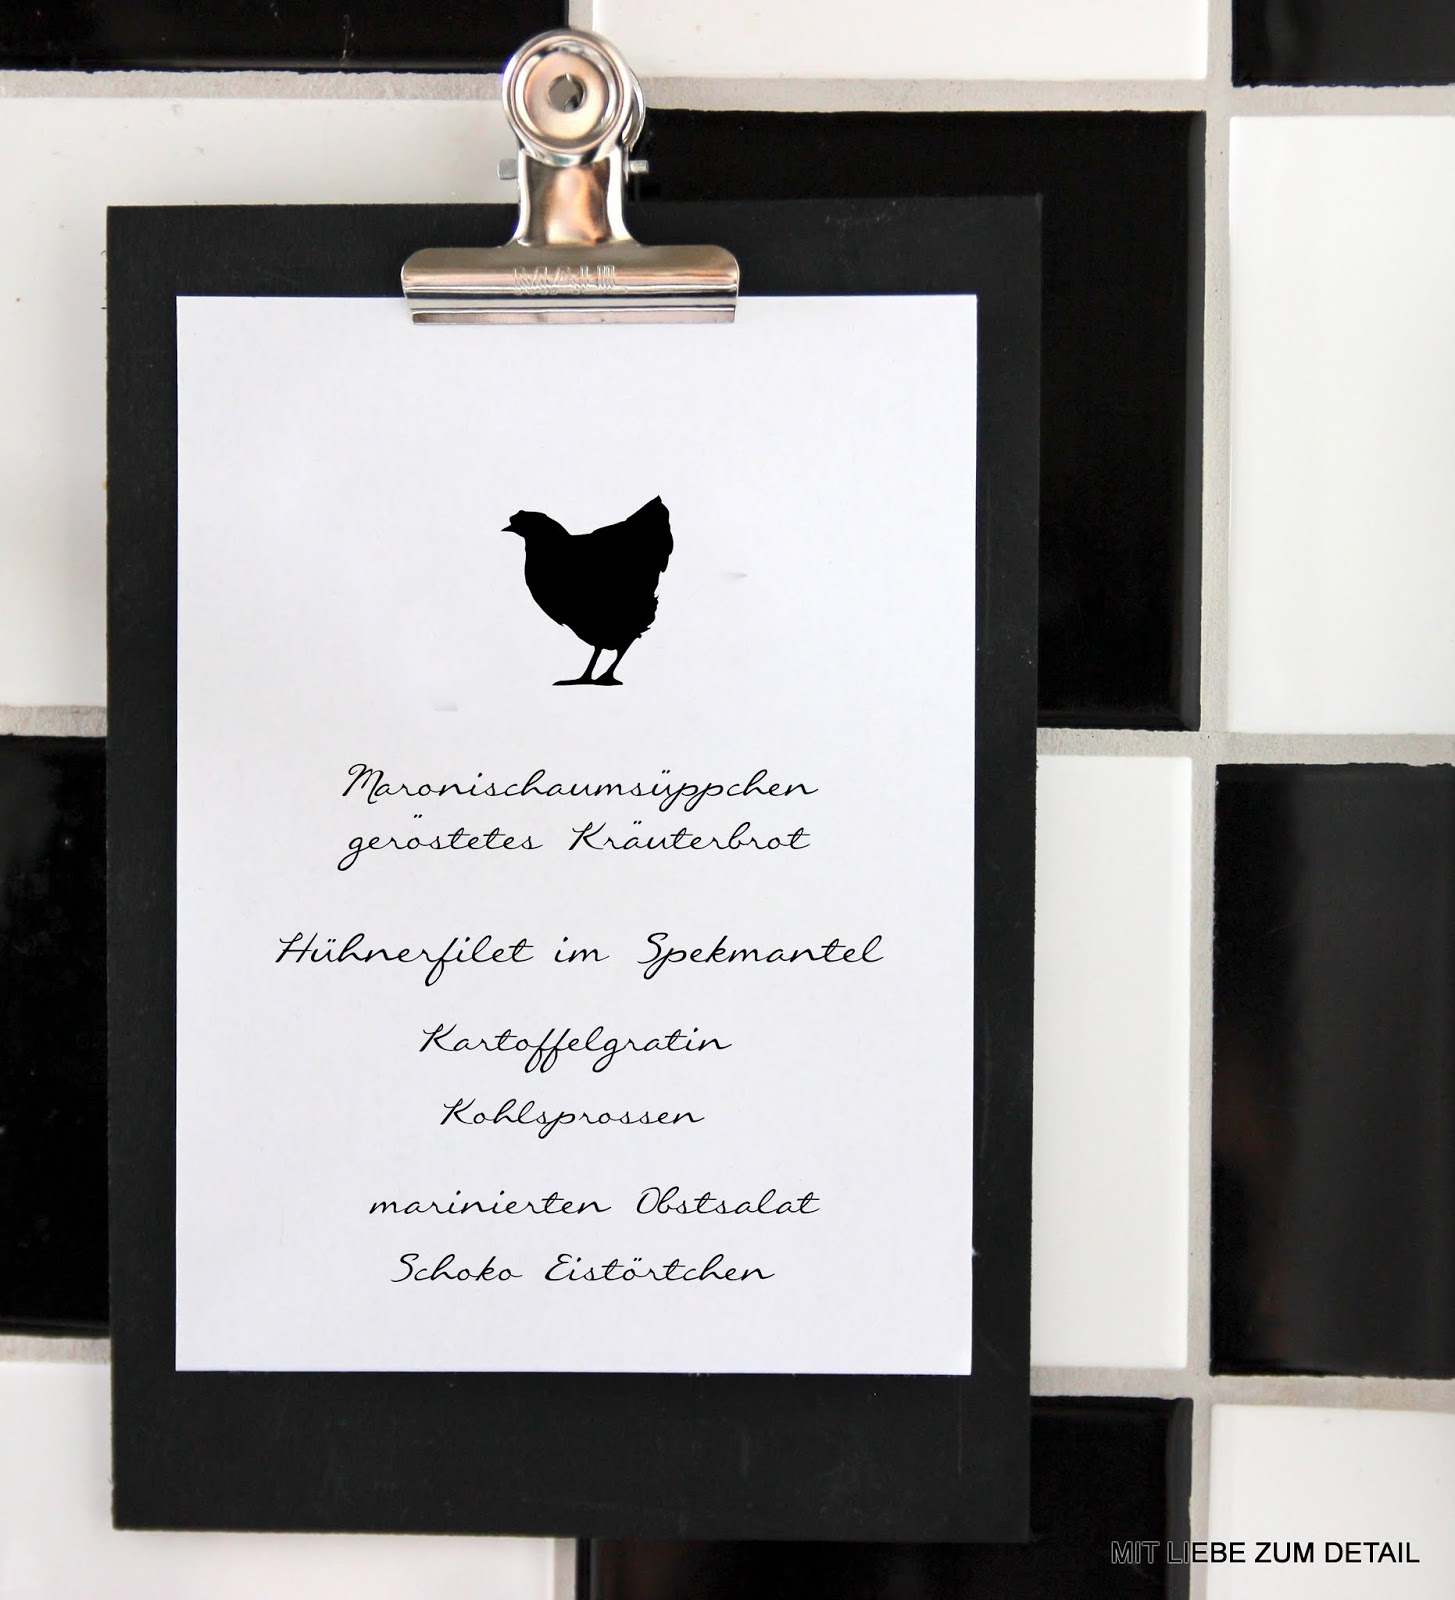 Maronischaumsüppchen
geröstetes Kräuterbrot
Hühnerfilet im Spekmantel
Kartoffelgratin
Kohlsprossen
marinierten Obstsalat
Schoko Eistörtchen
MIT LIEBE ZUM DETAIL